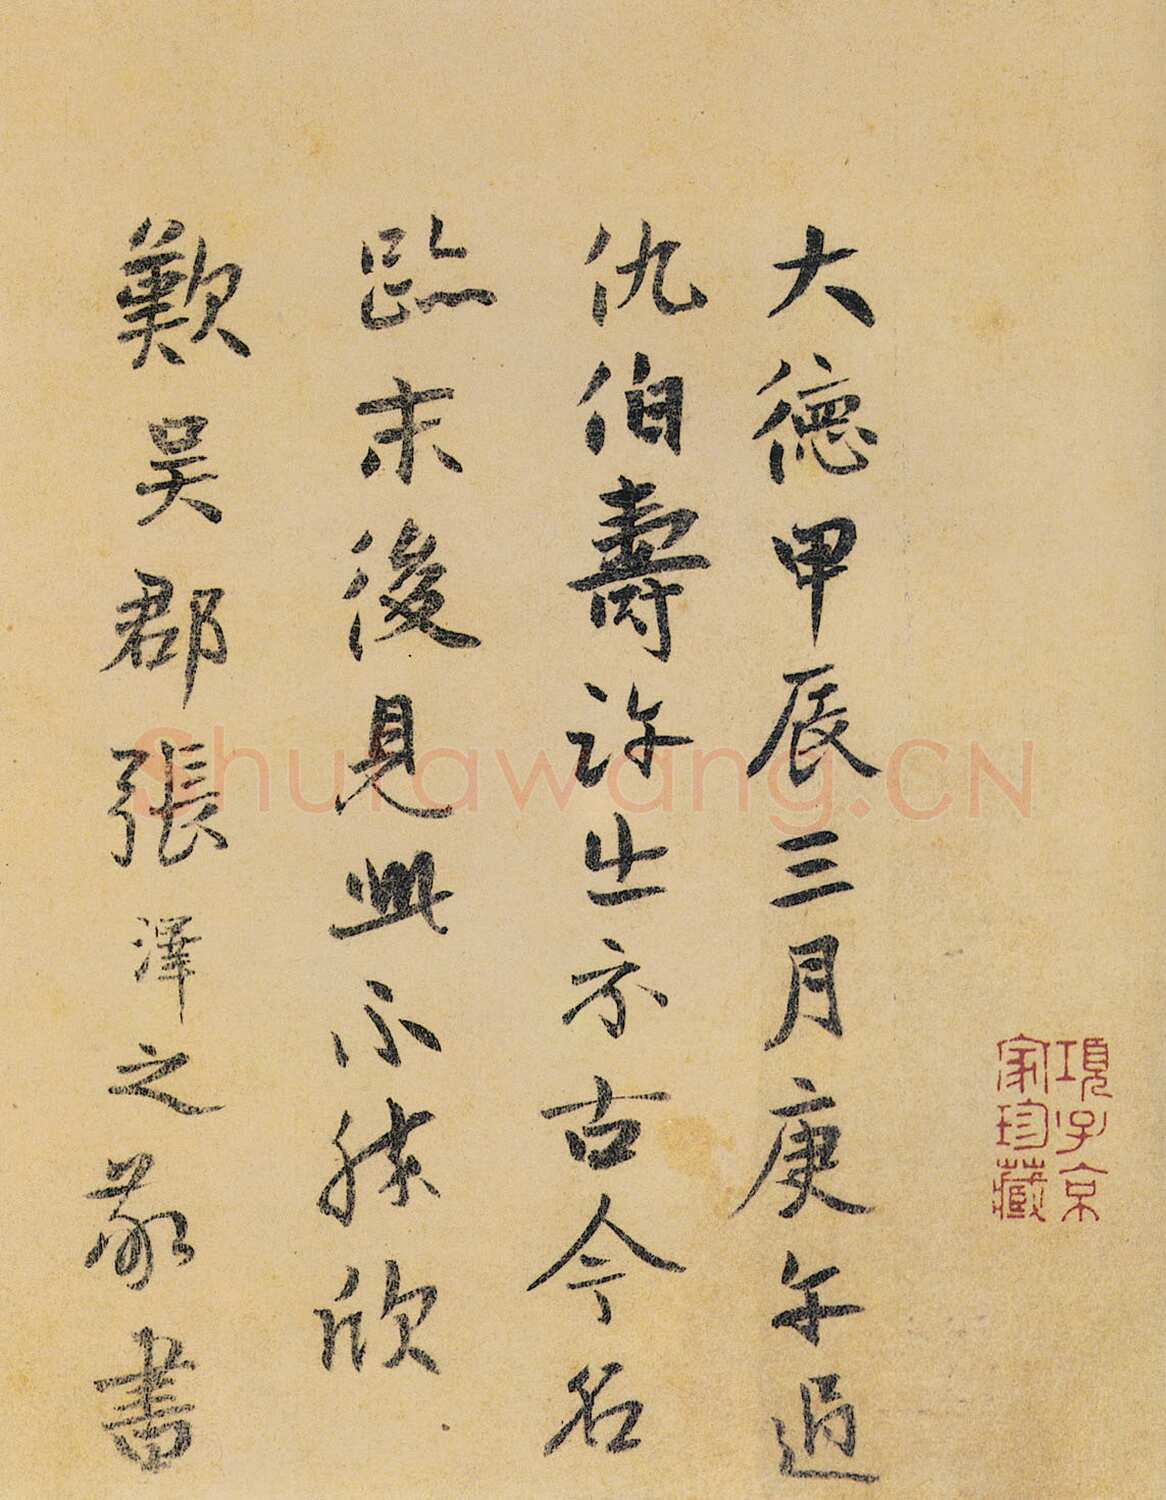 大德甲辰三月庚午過
仇伯壽許出示古今名
跡末後見此不勝欣
歎吴郡張澤之敬書
項子京
家珍藏
Shufawang.CN